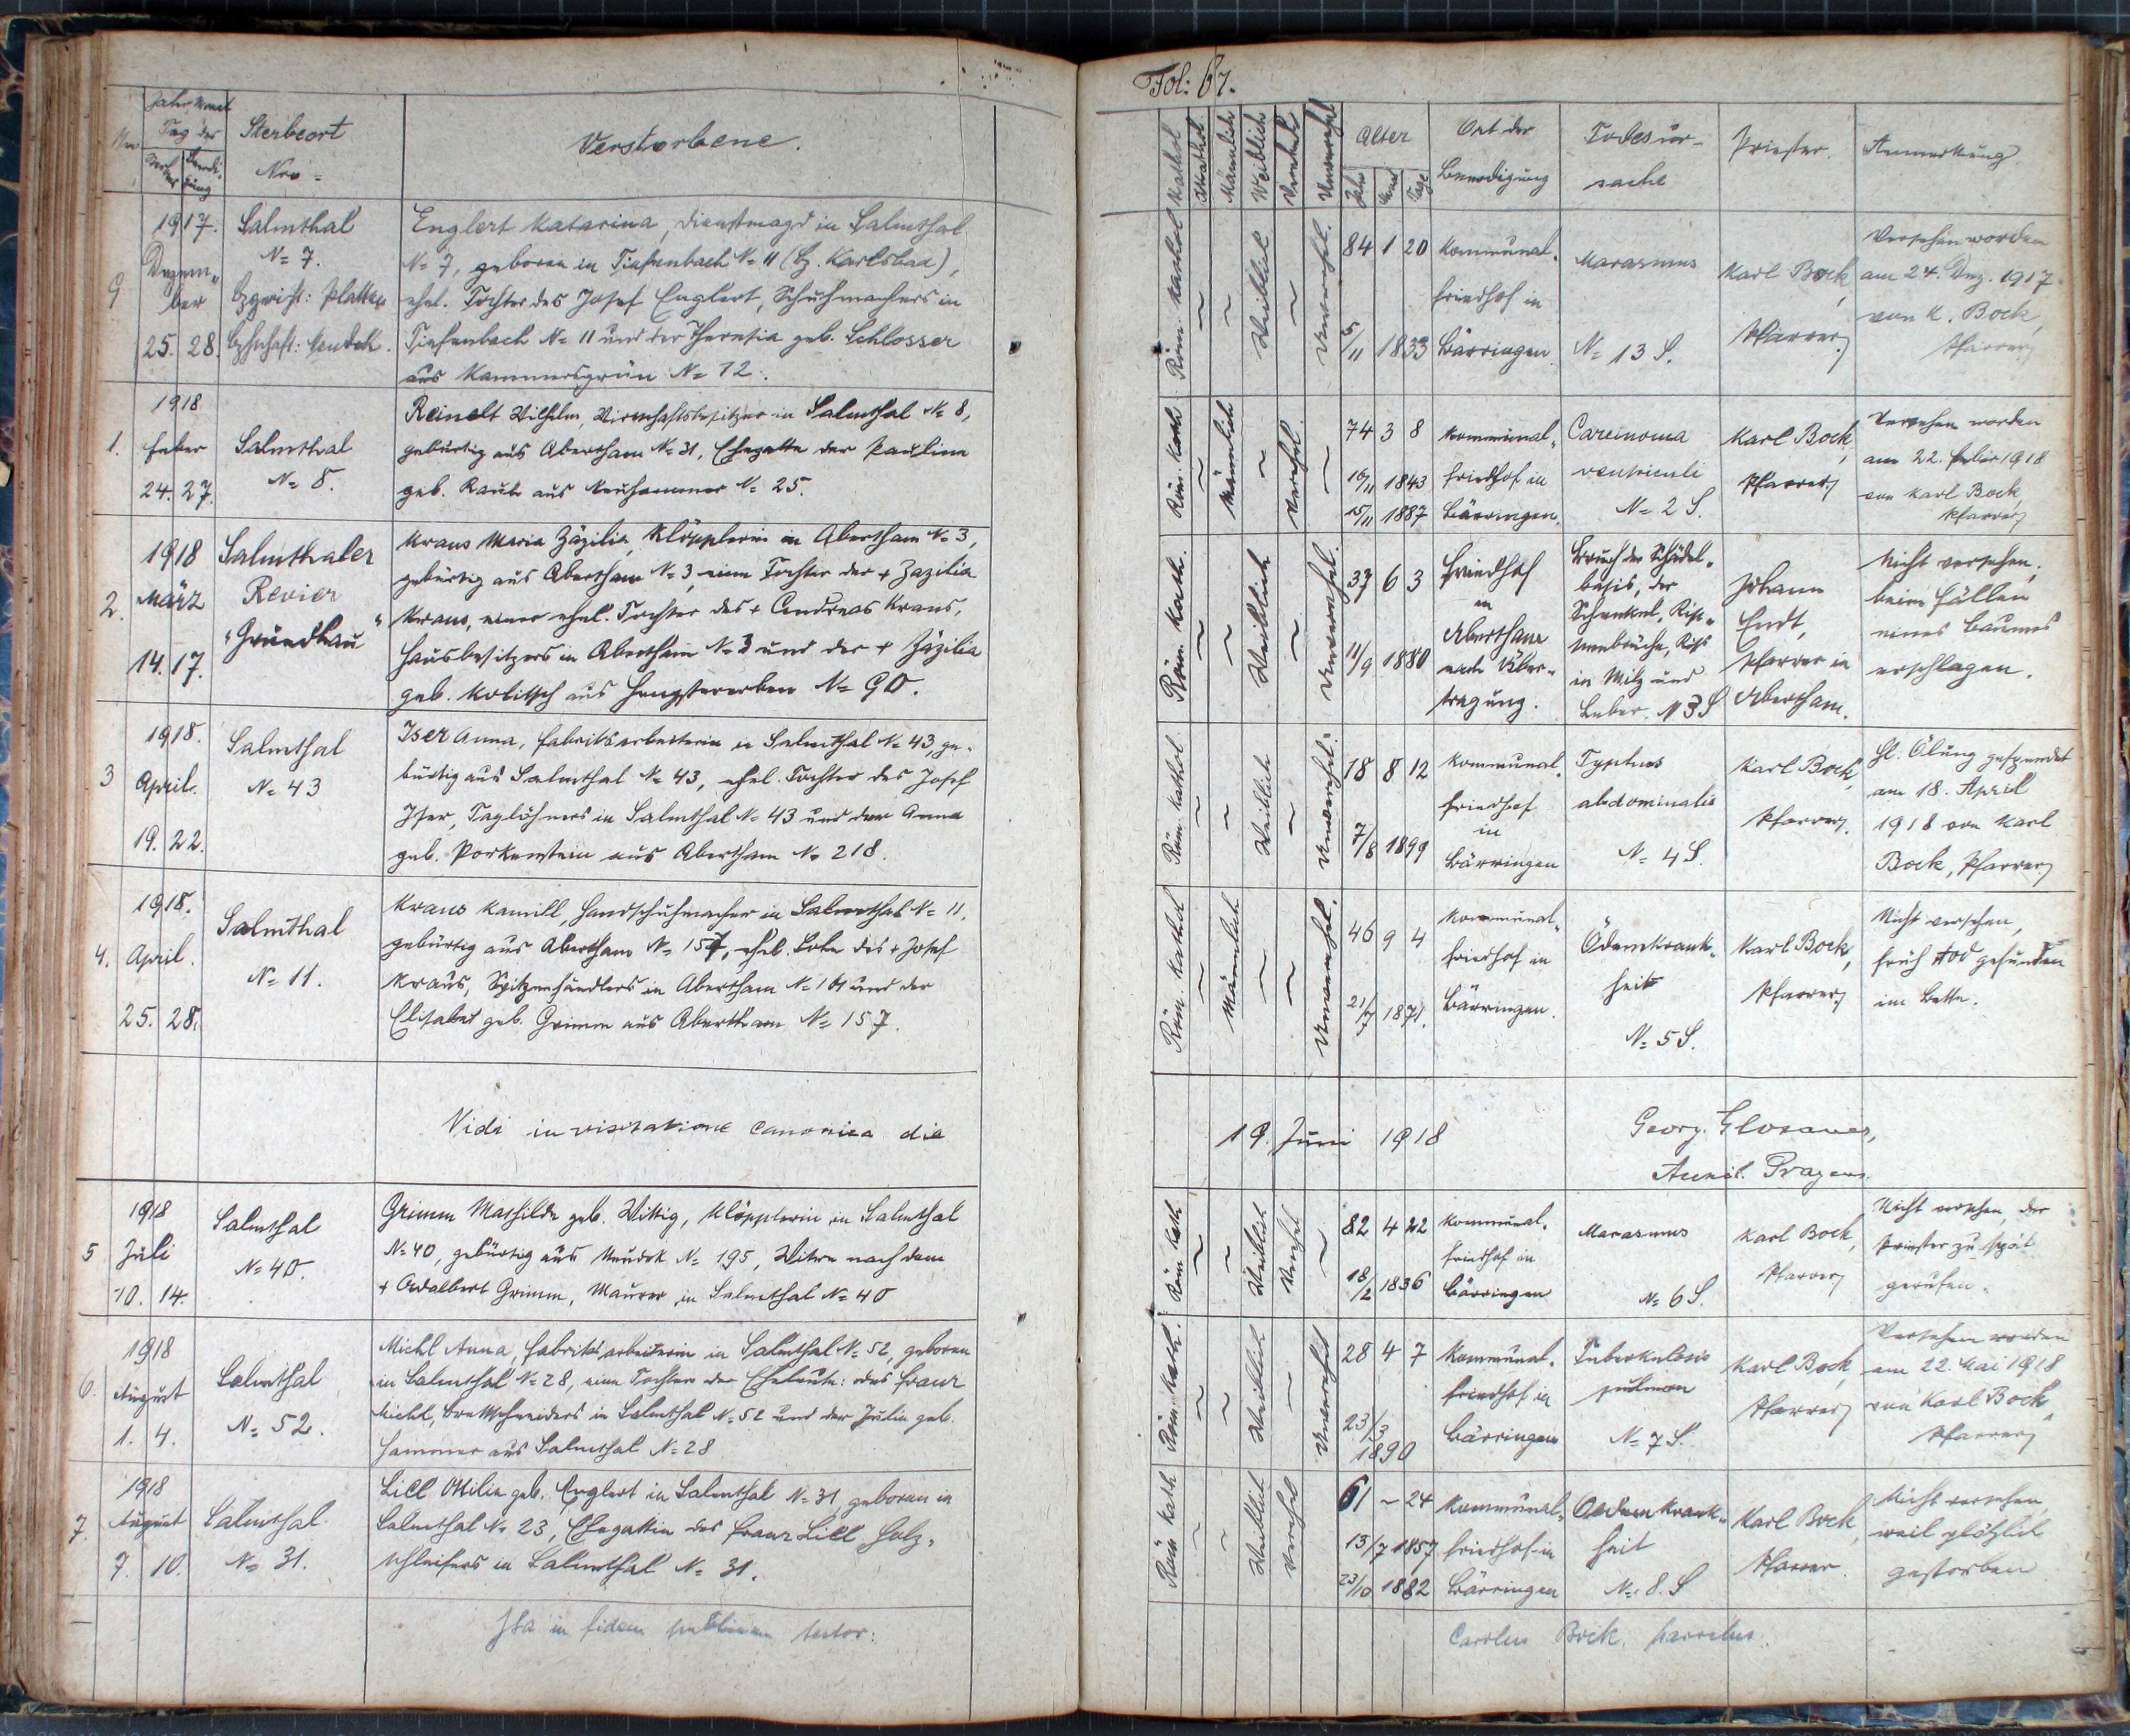 Fol: 67.
Jahr, Monat
Tag der
Sterbeort
Nro
Verstorbene.
Kathol
Akathol
Männlich
Weiblich
Verehel
Unverehel
Alter
Jahr
Monat
Tage
Ort der
Beerdigung
Todesur-
sache
Priester.
Anmerkung
9
1917.
Dezem-
ber
25. 28.
Salmthal
N= 7.
Bzgericht: Platten
Bzhschaft: Neudek.
Englert Katarina, Dienstmagd in Salmthal
N= 7, geboren in Tiefenbach N= 11 (Bz. Karlsbad),
ehel. Tochter des Josef Englert, Schuhmachers in
Tiefenbach N= 11 und der Theresia geb. Schlosser
aus Kammersgrün N= 12.
Röm. kathol
Weiblich
Unverehel.
84 1 20
5/11 1833
Kommunal-
friedhof in
Bärringen
Marasmus
N= 13 S.
Karl Bock,
Pfarrer
Versehen worden
am 24. Dez. 1917
von K. Bock,
Pfarrer
1.
1918
Feber
24. 27.
Salmthal
N= 8.
Reinelt Wilhelm, Wirtschaftsbesitzer in Salmthal N= 8,
gebürtig aus Abertham N= 31, Ehegatte der Paulina
geb. Raube aus Neuhammer N= 25.
Röm. kath.
Männlich
Verehel.
74 3 8
16/11 1843
15/11 1887
Kommunal-
friedhof in
Bärringen.
Carcinoma
ventriculi
N= 2 S.
Karl Bock,
Pfarrer
Versehen worden
am 22. Feber 1918
von Karl Bock,
Pfarrer
2.
1918
März
14. 17.
Salmthaler
Revier
"Gründhau"
Kraus Maria Zäzilia, Klöpplerin in Abertham N= 3,
gebürtig aus Abertham N= 3, eine Tochter der + Zäzilia
Kraus, einer ehel. Tochter des + Andreas Kraus,
Hausbesitzers in Abertham N= 3 und der + Zäzilia
geb. Kolitsch aus Hengstererben N= 90.
Röm. kath.
Weiblich
Unverehel.
37 6 3
11/9 1880
Friedhof
in
Abertham
nach Über-
tragung.
Bruch der Schädel-
basis, der
Schenkel, Rip-
penbrüche, Riss
in Milz und
Leber. N 3 S
Johann
Endt,
Pfarrer in
Abertham.
Nicht versehen,
beim Fällen
eines Baumes
erschlagen.
3
1918.
April.
19. 22.
Salmthal
N= 43
Iser Anna, Fabriksarbeiterin in Salmthal N= 43, ge-
bürtig aus Salmthal N= 43, ehel. Tochter des Josef
Iser, Taglöhners in Salmthal N= 43 und der Anna
geb. Porkenstein aus Abertham N= 218.
Röm. kathol
Weiblich
Unverehel.
18 8 12
7/8 1899
Kommunal-
friedhof
in
Bärringen
Typhus
abdominalis
N= 4 S.
Karl Bock,
Pfarrer.
Hl. Ölung gespendet
am 18. April
1918 von Karl
Bock, Pfarrer
4.
1918.
April.
25. 28.
Salmthal
N= 11.
Kraus Kamill, Handschuhmacher in Salmthal N= 11,
gebürtig aus Abertham N= 157, ehel. Sohn des + Josef
Kraus, Spitzenhändlers in Abertham N= 161 und der
Elisabet geb. Grimm aus Abertham N= 157.
Röm. kathol
Männlich
Unverehel.
46 9 4
21/7 1871.
Kommunal-
friedhof in
Bärringen.
Ödemkrank-
heit
N= 5 S.
Karl Bock,
Pfarrer
Nicht versehen,
früh tod gefunden
im Bette.
Vidi in visitatione canonica die
19. Juni 1918
Georg. Glosauer,
5
1918
Juli
10. 14.
Salmthal
N= 40.
Grimm Mathilde geb. Wittig, Klöpplerin in Salmthal
N= 40, gebürtig aus Neudek N= 195, Witwe nach dem
+ Adalbert Grimm, Maurer in Salmthal N= 40
Röm. kath
Weiblich
Verehel
82 4 22
18/2 1836
Kommunal-
friedhof in
Bärringen
Marasmus
N= 6 S.
Karl Bock,
Pfarrer
Nicht versehen, der
Priester zu spät
gerufen.
6.
1918
August
1. 4.
Salmthal
N= 52.
Michl Anna, Fabriksarbeiterin in Salmthal N= 52, geboren
in Salmthal N= 28, eine Tochter der Eheleute: des Franz
Michl, Brettschneiders in Salmthal N= 52 und der Julie geb.
Hammer aus Salmthal N= 28
Röm. kath.
Weiblich
Unverehel
28 4 7
23/3
1890
Kommunal-
friedhof in
Bärringen
Tuberkulosis
pulmon
N= 7 S.
Karl Bock,
Pfarrer
Versehen worden
am 22. Mai 1918
von Karl Bock
Pfarrer
7.
1918
August
7. 10.
Salmthal
N= 31.
Lill Ottilia geb. Englert in Salmthal N= 31, geboren in
Salmthal N= 23, Ehegattin des Franz Lill Holz-
schleifers in Salmthal N= 31.
Röm kath
Weiblich
Verehel
61 – 24
13/7 1857
23/10 1882
Kommunal-
friedhof in
Bärringen
Oedemkrank-
heit
N= 8. S
Karl Bock,
Pfarrer.
Nicht versehen,
weil plötzlich
gestorben
Ita in fidem publicam testor:
Carolus Bock, parochus.